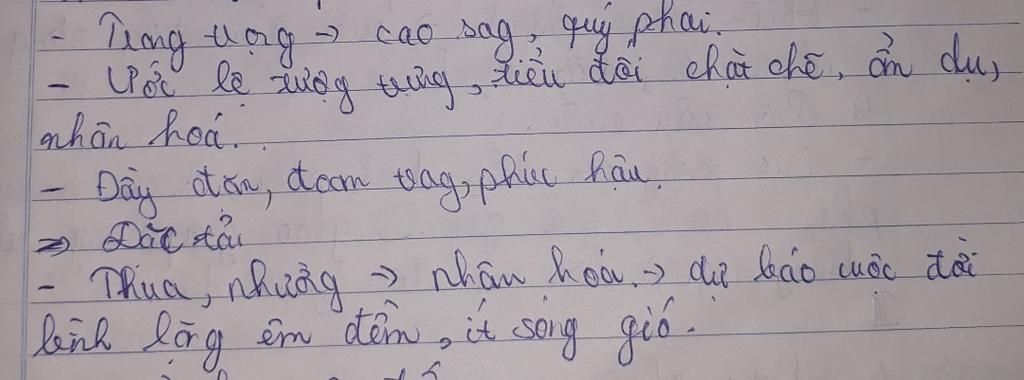 - Trang trọng → cao sag, quý phái.
- Ước lệ tượg trưng, tiểu đối chặt chẽ, ẩn dụ,
nhân hoá.
- Đầy đặn, đoan trag, phúc hậu.
⇒ Đặc tả
- Thua, nhường → nhân hoá. → dự báo cuộc đời
bình lặng êm đềm, ít sóng gió.